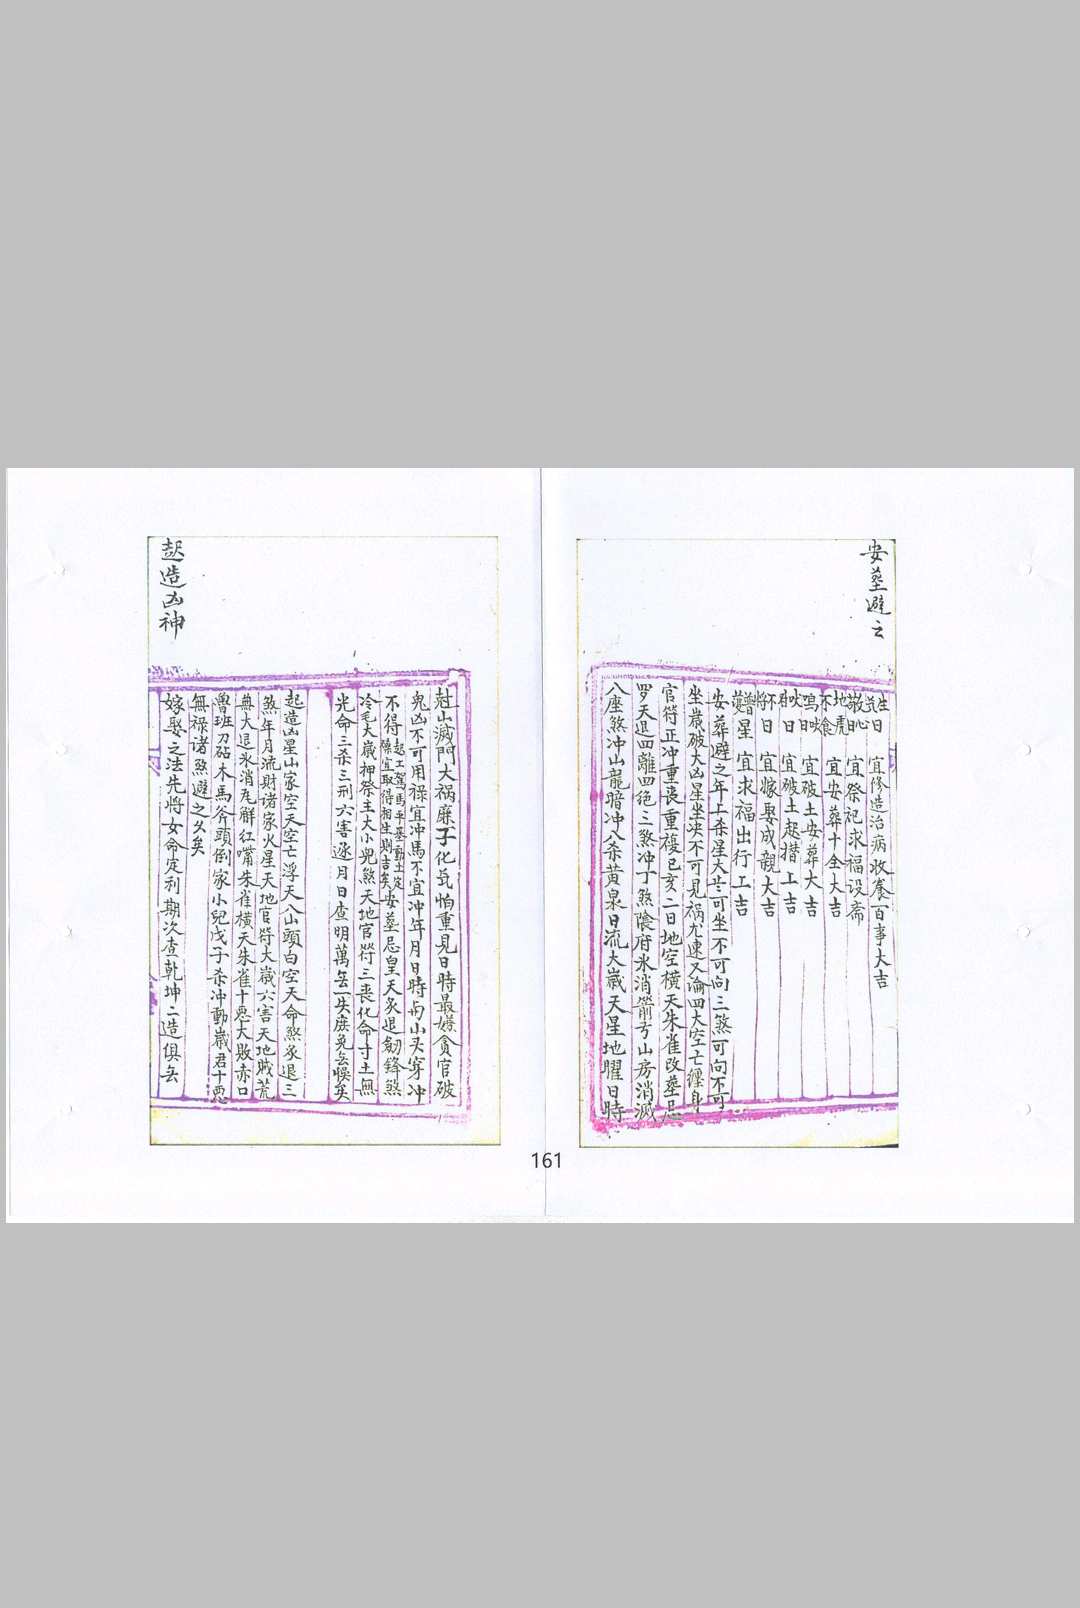 安塟避云
生氣日 宜修造治病收養百事大吉
敬心日 宜祭祀求福设斋
地虎不食 宜安葬十全大吉
鳴吠日 宜破土安葬大吉
吠对日 宜破土起攒上吉
不将日 宜嫁娶成親大吉
星 宜求福出行上吉
安葬避之年上杀星大芒可坐不可向三煞可向不可
坐歲破大凶星坐决不可見祸尤速又論四大空亡缠身
官符正冲重丧重複巳亥二日地空横天朱雀改塟忌
罗天退四離四绝三煞冲丁煞陰府氷消箭刃山房消滅
八座煞冲山龍暗冲八杀黄泉日流大歲天星地曜日時
尅山滅門大祸廉子化氣怕重見日時最嫌貪官破
鬼凶不可用禄宜冲馬不宜冲年月日時与山头穿冲
不得起工駕馬平基動土定磉宜取得相生則吉矣安塟忌皇天炙退劍鋒煞
冷毛大歲押祭主大小兇煞天地官符三丧化命寸土無
光命三杀三刑六害逐月日查明萬無一失庶免無悮矣
起造凶神
起造凶星山家空天空亡浮天入山頭白空天命煞炙退三
煞年月流財诸家火星天地官符大歲六害天地賊荒
蕪大退氷消瓦觧紅嘴朱雀横天朱雀十惡大敗赤口
魯班刀砧木馬斧頭倒家小兒戊子杀冲動歲君十惡
無禄诸煞避之久矣
嫁娶之法先將女命定利期次查乾坤二造俱無
161